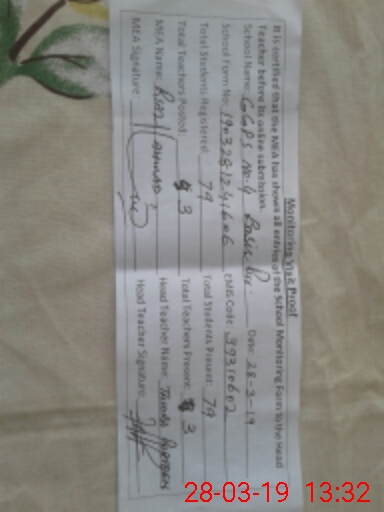 Monitoring Visit Proof
It is certified that the MEA has shown all entries of the School Monitoring Form to the Head
Teacher before its online submission.
School Name: GGPS No.4 Date: 28-3-19
School Form No: EMIS Code: 39310602
Total Students Registered: 79 Total Students Present: 79
Total Teachers Posted: 3 Total Teachers Present: 3
MEA Name: Head Teacher Name:
MEA Signature: Head Teacher Signature:
28-03-19 13:32